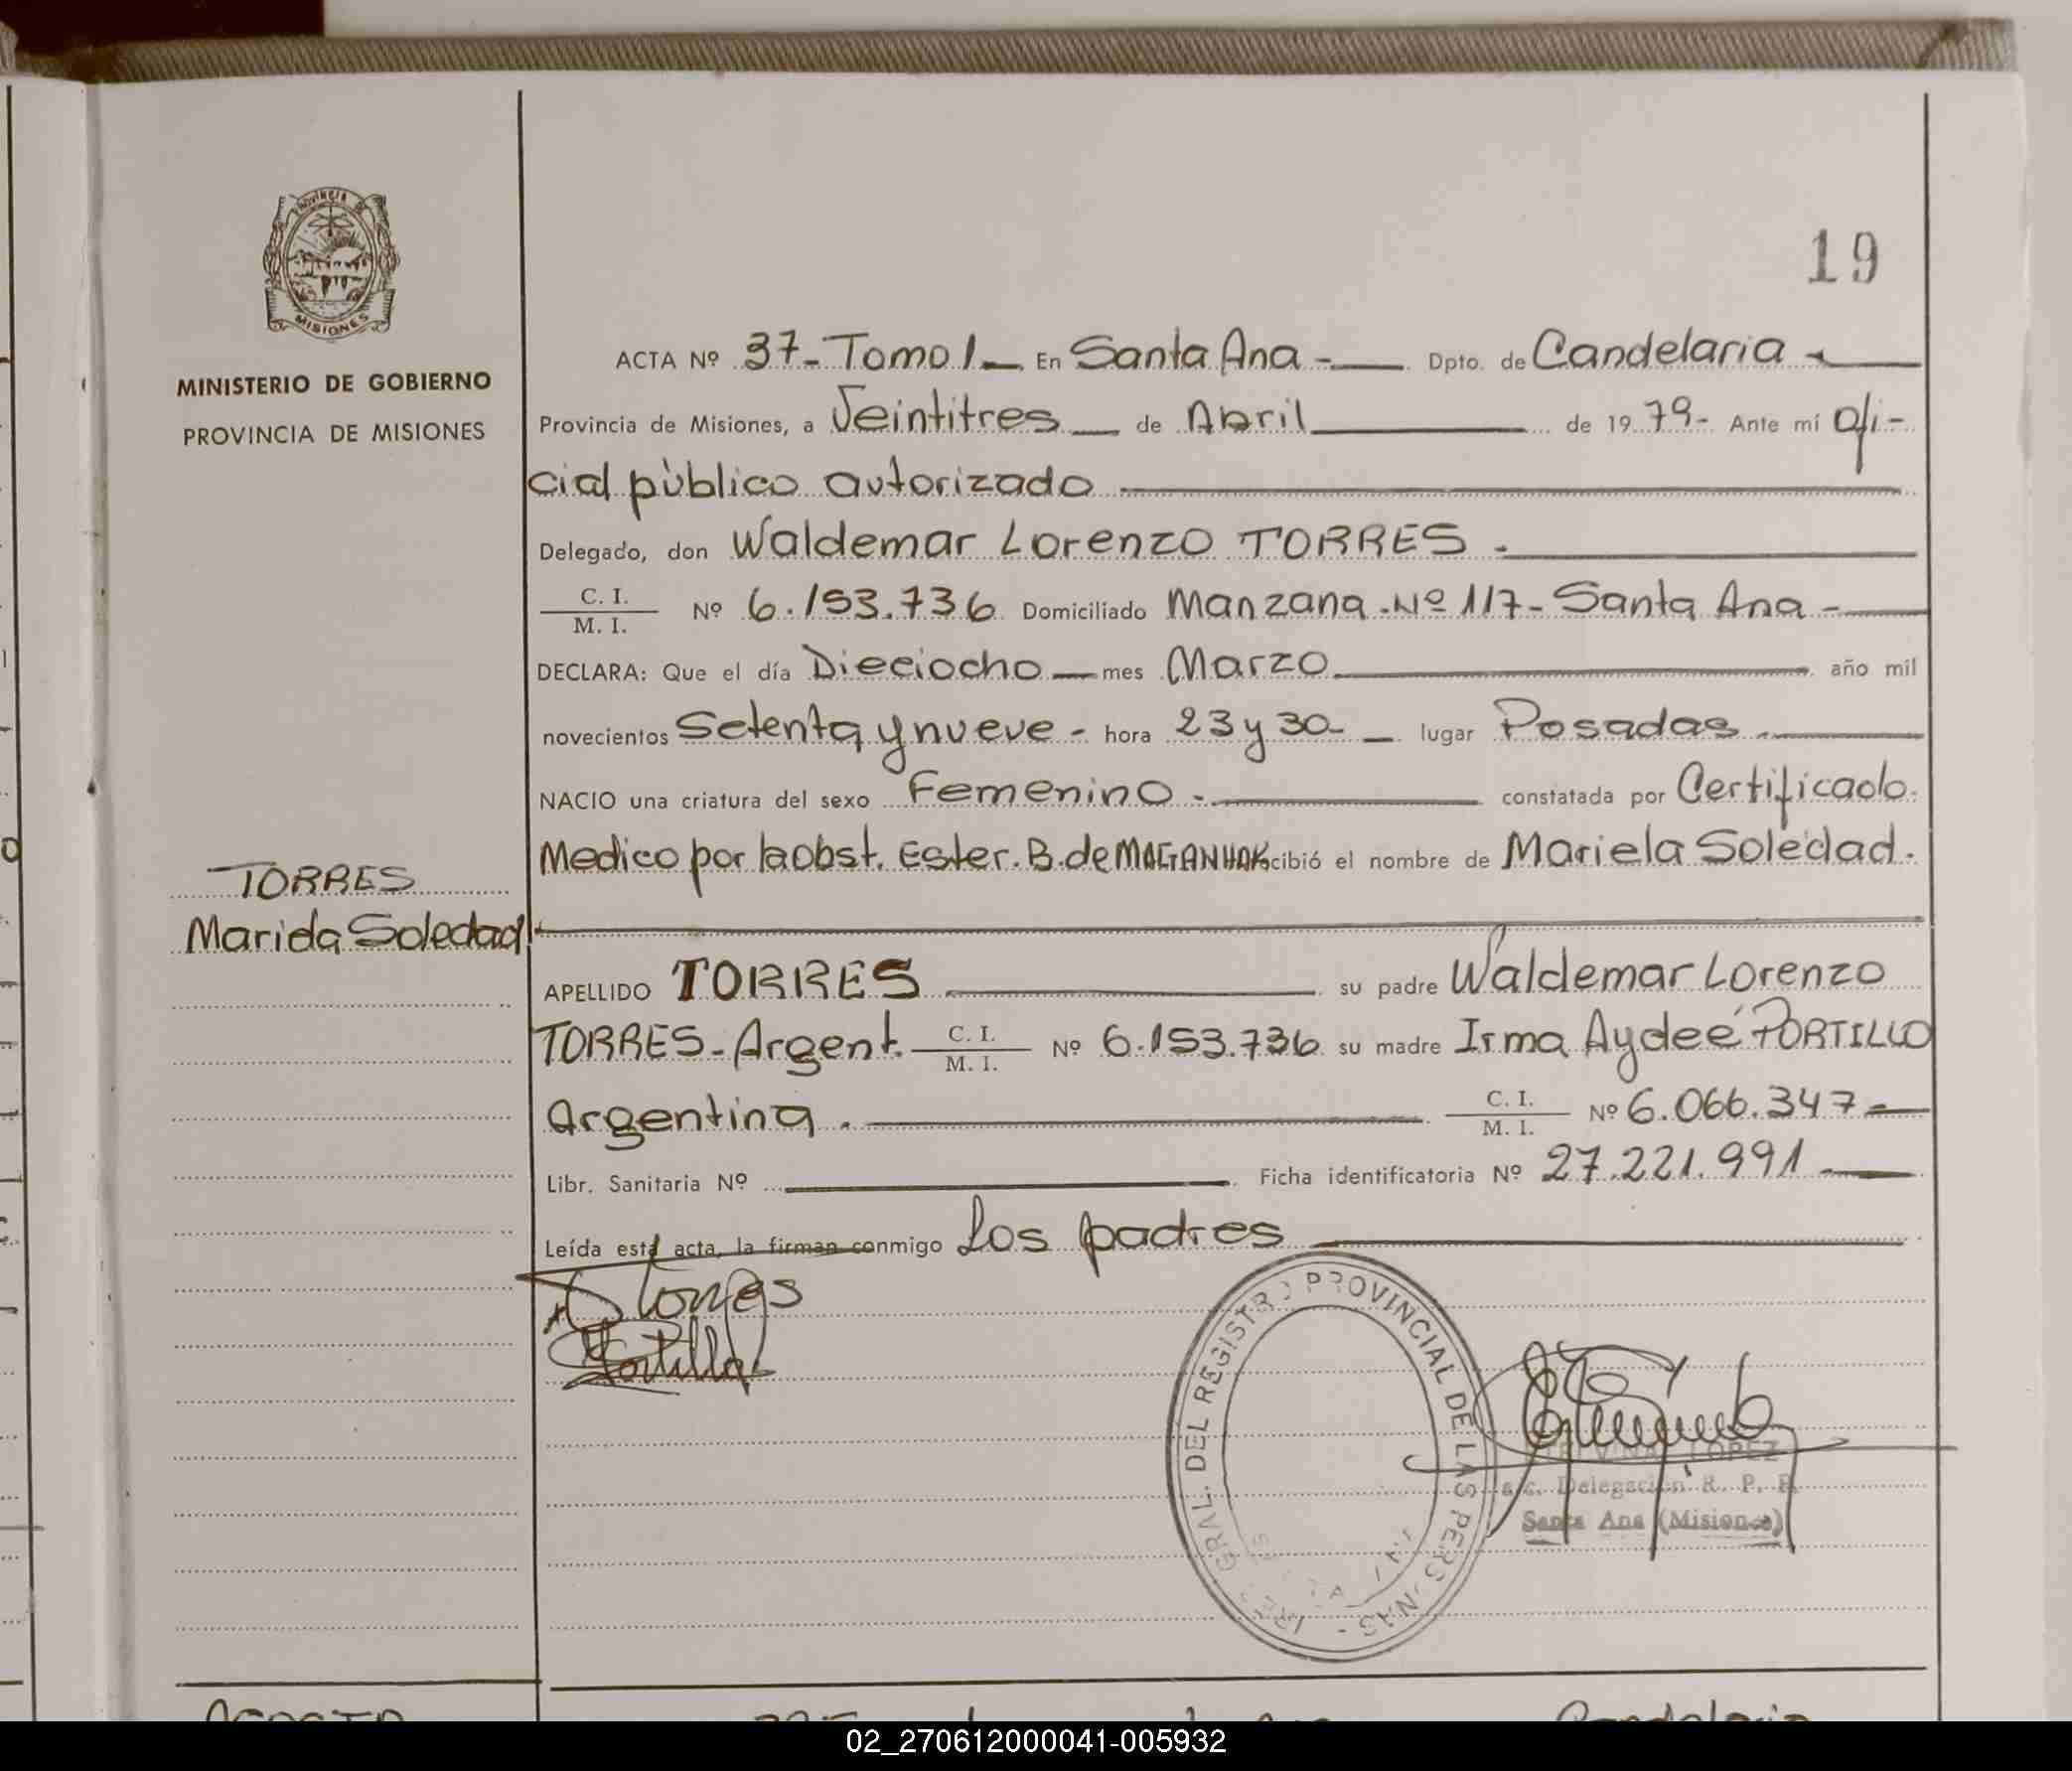 PROVINCIA DE
MISIONES
MINISTERIO DE GOBIERNO
PROVINCIA DE MISIONES
TORRES
Mariela Soledad
19
ACTA Nº 37- Tomo 1 - En Santa Ana - Dpto. de Candelaria -
Provincia de Misiones, a Veintitres de Abril de 1979- Ante mí Ofi-
cial pùblico autorizado
Delegado, don Waldemar Lorenzo TORRES -
C. I.
M. I. Nº 6.153.736 Domiciliado Manzana Nº 117- Santa Ana -
DECLARA: Que el día Dieciocho mes Marzo año mil
novecientos Setenta y nueve - hora 23 y 30 - lugar Posadas
NACIO una criatura del sexo Femenino - constatada por Certificado
Medico por la obst. Ester. B. de recibió el nombre de Mariela Soledad.
APELLIDO TORRES su padre Waldemar Lorenzo
TORRES- Argent. C. I.
M. I. Nº 6.153.736 su madre Irma Aydeé PORTILLO
Argentina. C. I.
M. I. Nº 6.066.347-
Libr. Sanitaria Nº Ficha identificatoria Nº 27.221.991
Leída esta acta, la firman conmigo Los padres
Torres
Portillo
GRAL. DEL REGISTRO PROVINCIAL DE LAS PERSONAS -
LOPEZ
a/c. Delegación R. P. P.
Santa Ana (Misiones)
Candelaria
02_270612000041-005932